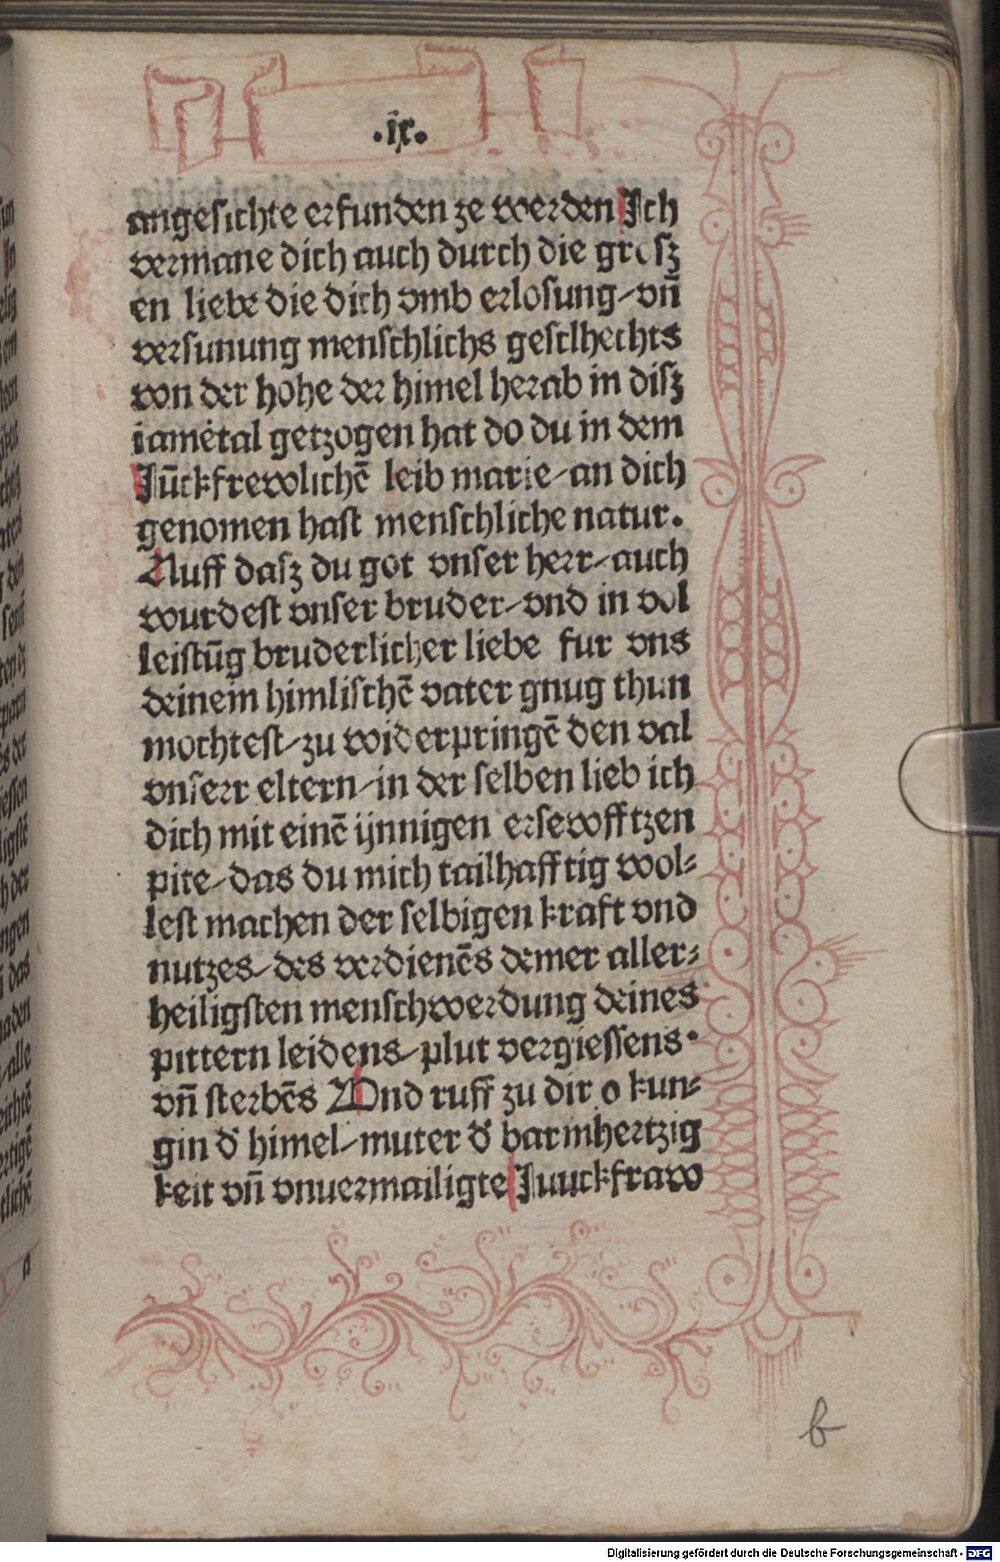 .ix.
angesichte erfunden ze werden Ich
vermane dich auch durch die grosz
en liebe die dich vmb erlosung/vn̄
versunung menschlichs gesclhechts
von der hohe der himel herab in disz
iamētal getzogen hat do du in dem
Jūckfrewlichē leib marie/an dich
genomen hast menschliche natur.
Auff dasz du got vnser herr/auch
wurdest vnser bruder/vnd in vol
leistūg bruderlicher liebe fur vns
deinem himlischē vater gnug thun
mochtest/zu widerpringē den val
vnserr eltern/in der selben lieb ich
dich mit einē ijnnigen ersewfftzen
pite/das du mich tailhafftig wol⸗
lest machen der selbigen kraft vnd
nutzes/des verdienēs deiner aller⸗
heiligsten menschwerdung deines
pittern leidens/plut vergiessens·
vn̄ sterbēs Vnd ruff zu dir o kun⸗
gin d̕ himel/muter d̕ barmhertzig
keit vn̄ vnuermailigte Juuckfraw
b
Digitalisierung gefördert durch die Deutsche Forschungsgemeinschaft - DFG